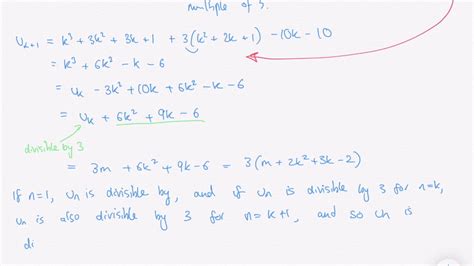 multiple of 3.
U_{k+1} = k³ + 3k² + 3k + 1 + 3(k² + 2k + 1) - 10k - 10
= k³ + 6k² - k - 6
= U_k - 3k² + 10k + 6k² - k - 6
= U_k + 6k² + 9k - 6
divisible by 3
= 3m + 6k² + 9k - 6 = 3(m + 2k² + 3k - 2)
If n=1, Un is divisible by, and if Un is divisible by 3 for n=k,
Un is also divisible by 3 for n = k+1, and so Un is
di